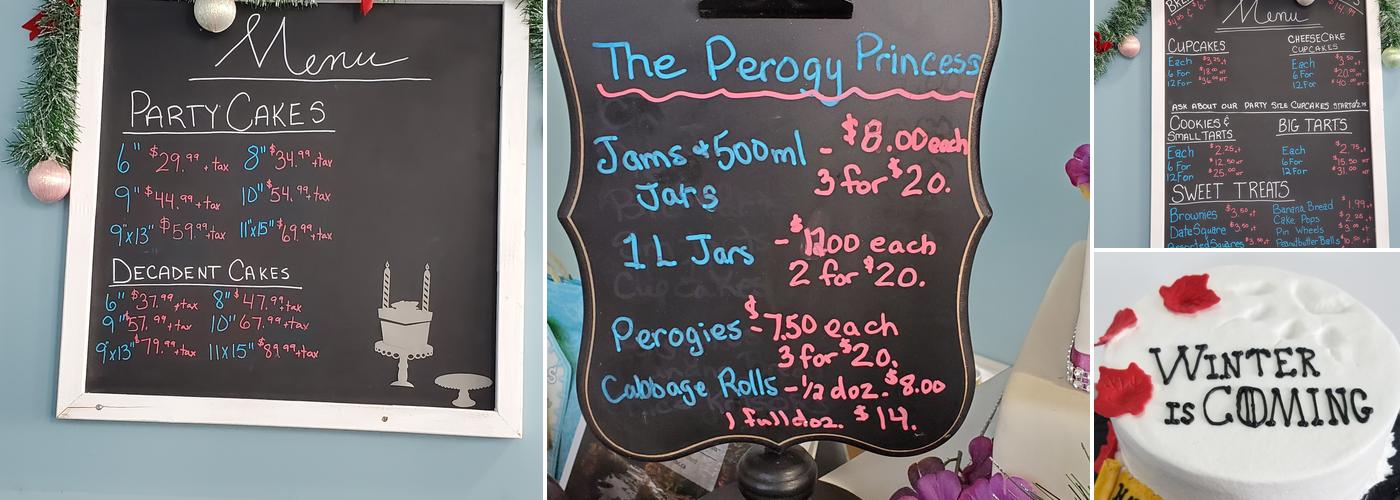 Menu
PARTY CAKES
6" $29.99 + tax 8" $34.99 +tax
9" $44.99 +tax 10" $54.99 +tax
9"x13" $59.99 +tax 11"x15" $69.99 +tax
DECADENT CAKES
6" $37.99 +tax 8" $47.99 +tax
9" $57.99 +tax 10" 67.99 +tax
9"x13" $79.99 +tax 11x15" $89.99 +tax
The Perogy Princess
Jams & 500ml - $8.00 each
Jars 3 for $20.
1 L Jars - $12.00 each
2 for $20.
Perogies - $7.50 each
3 for $20.
Cabbage Rolls - 1/2 doz. $8.00
1 full doz. $14.
Menu
CUPCAKES
Each $3.25 +t
6 For $18.00
12 For $36.00
CHEESECAKE
CUPCAKES
Each $3.50
6 For $20.00
12 For
ASK ABOUT OUR PARTY SIZE CUPCAKES
COOKIES &
SMALL TARTS
Each $2.25 +t
6 For $12.50
12 For $25.00
BIG TARTS
Each $2.75 +t
6 For $15.50
12 For $31.00
SWEET TREATS
Brownies $3.50 +t
Date Square $3.50 +t
Assorted Squares
Banana Bread $1.99 +t
Cake Pops $2.25 +t
Pin Wheels
Peanutbutter Balls
WINTER
IS COMING